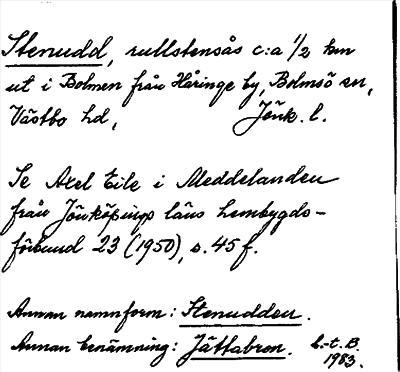 Stenudd, rullstensås c:a 1/2 km
ut i Bolmen från Håringe by, Bolmsö sn,
Västbo hd, Jönk. l.
Se Axel Eile i Meddelanden
från Jönköpings läns hembygds-
förbund 23 (1950), s. 45 f.
Annan namnform: Stenudden.
Annan benämning: Jättabron. b.-t. B.
1983.